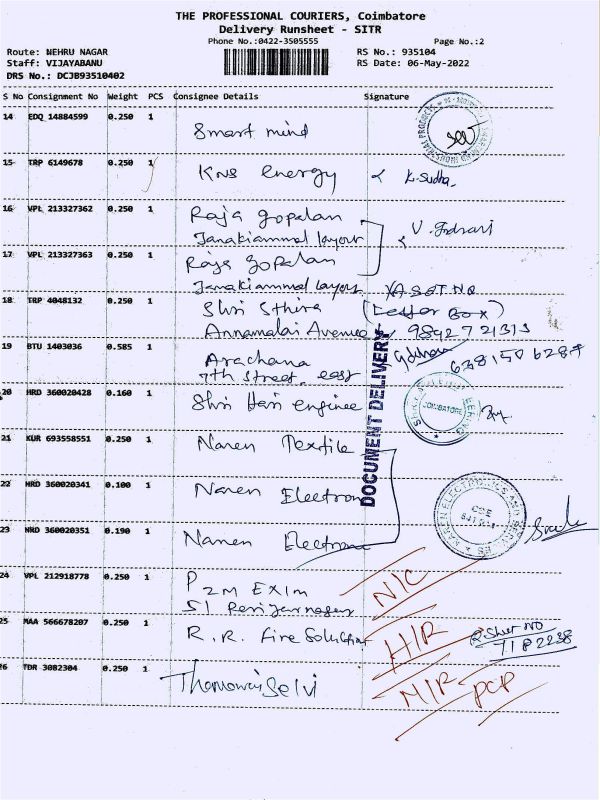 THE PROFESSIONAL COURIERS, Coimbatore
Delivery Runsheet - SITR
Phone No.:0422-3505555 Page No.:2
Route: NEHRU NAGAR RS No.: 935104
Staff: VIJAYABANU RS Date: 06-May-2022
DRS No.: DCJB93510402
S No Consignment No Weight PCS Consignee Details Signature
14 EDQ 14884599 0.250 1
Smart mind
15 TRP 6149678 0.250 1
KNS energy K. Sudha.
16 VPL 213327362 0.250 1
Raja gopalan
Janakiammal layout
17 VPL 213327363 0.250 1
Raja gopalan
Janakiammal layout
18 TRP 4048132 0.250 1
Shri Sthira
Annamalai Avenue 9892721313
19 BTU 1403036 0.585 1
Arachana
7th street, east
20 HRD 360020428 0.160 1
Shri Hari enginee
COIMBATORE
DOCUMENT DELIVERY
21 KUR 693558551 0.250 1
Naren Textile
22 HRD 360020341 0.100 1
Naren Electron
23 HRD 360020351 0.190 1
Naren
24 VPL 212918778 0.250 1
P 2M EXIM
51 N/C
25 MAA 566678207 0.250 1
R.R. Fire Solution
R Sheet NO
7182238
26 TDR 3082304 0.250 1
Selvi
PCP